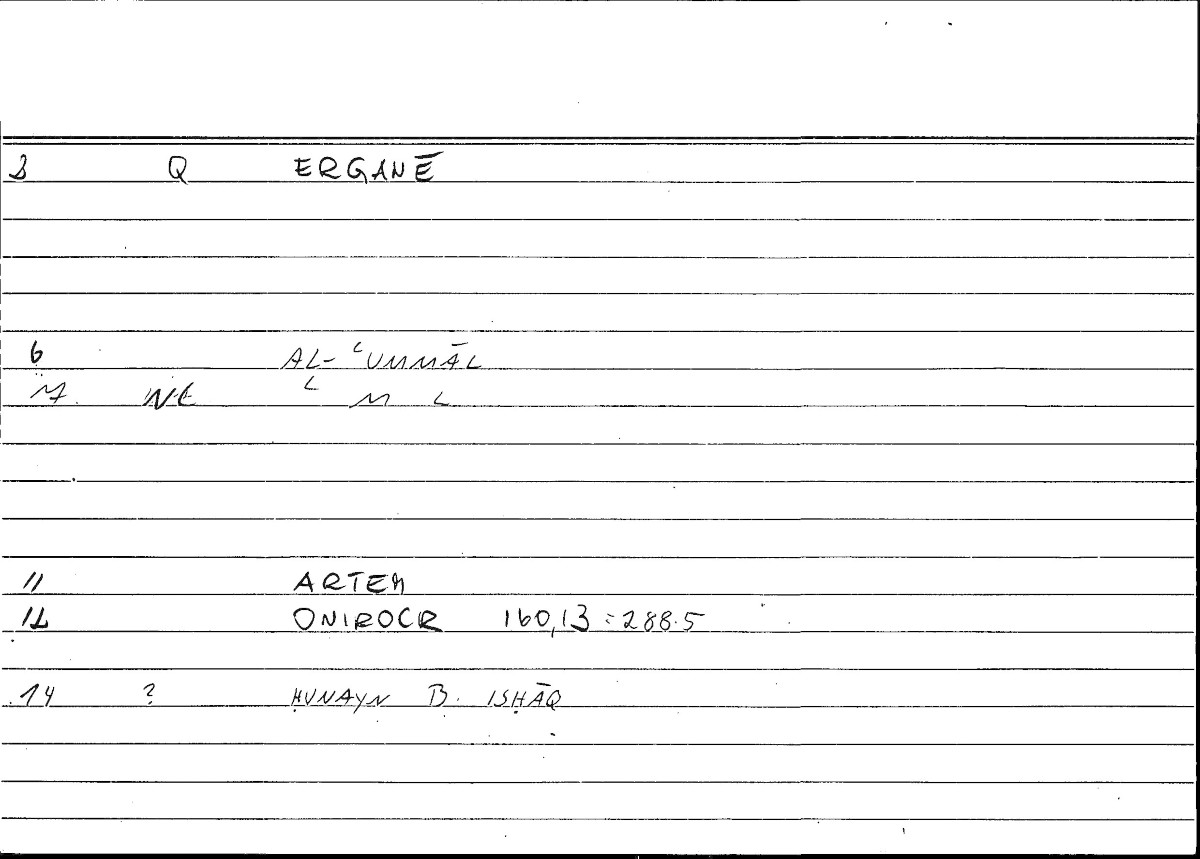 3 Q ERGANĒ
6 AL-ʿUMMĀL
7. NE ʿ M L
11 ARTEM
12 ONIROCR 160,13 = 288.5
14 ? ḤUNAYN B. ISḤĀQ